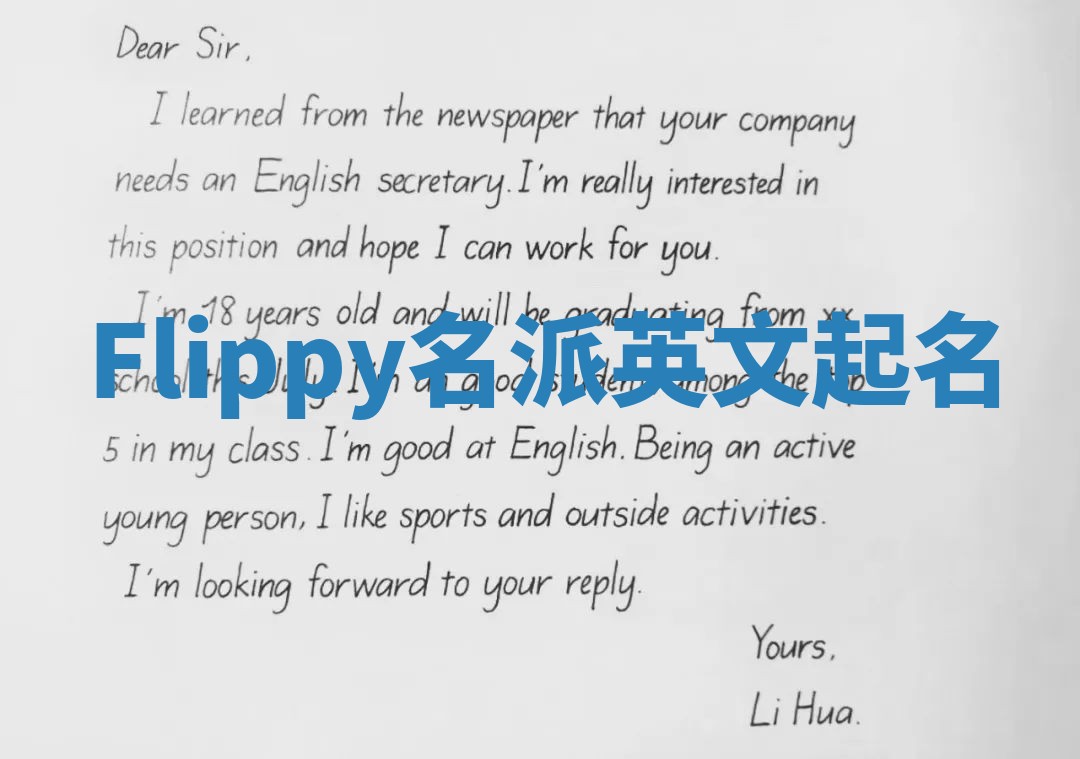 Dear Sir,
I learned from the newspaper that your company
needs an English secretary. I'm really interested in
this position and hope I can work for you.
I'm 18 years old and will be graduating from xx
Flippy名派英文起名
school this July. I'm a good student among the top
5 in my class. I'm good at English. Being an active
young person, I like sports and outside activities.
I'm looking forward to your reply.
Yours,
Li Hua.